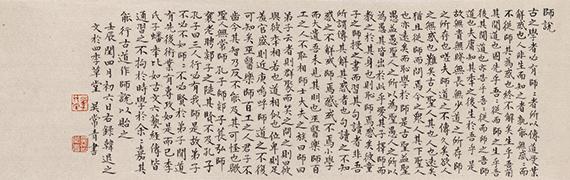 師說
古之學者必有師師者所以傳道受業
解惑也人非生而知之者孰能無惑惑
而不從師其為惑也終不解矣生乎吾前
其聞道也固先乎吾吾從而師之生乎吾
後其聞道也亦先乎吾吾從而師之吾師
道也夫庸知其年之先後生於吾乎是
故無貴無賤無長無少道之所存師
之所存也嗟乎師道之不傳也久矣欲人
之無惑也難矣古之聖人其出人也遠矣
猶且從師而問焉今之眾人其下聖人
也亦遠矣而恥學於師是故聖益聖
愚益愚聖人之所以為聖愚人之所以
為愚其皆出於此乎愛其子擇師而
教之於其身也則恥師焉惑矣彼童
子之師授之書而習其句讀者非吾
所謂傳其道解其惑者也句讀之不知
惑之不解或師焉或不焉小學
而大遺吾未見其明也巫醫樂師百
工之人不恥相師士大夫之族曰師曰
弟子云者則群聚而笑之問之則曰彼
與彼年相若也道相似也位卑則足
羞官盛則近諛嗚呼師道之不復
可知矣巫醫樂師百工之人君子不
齒今其智乃反不能及其可怪也歟
聖人無常師孔子師郯子萇弘師
襄老聃郯子之徒其賢不及孔子
孔子曰三人行必有我師是故弟子
不必不如師師不必賢於弟子聞道
有先後術業有專攻如是而已李
氏子蟠年十七好古文六藝經傳皆
通習之不拘於時學於余余嘉其
能行古道作師說以貽之
壬辰閏四月初六日右錄韓退之
文於四季草堂 吳常青書